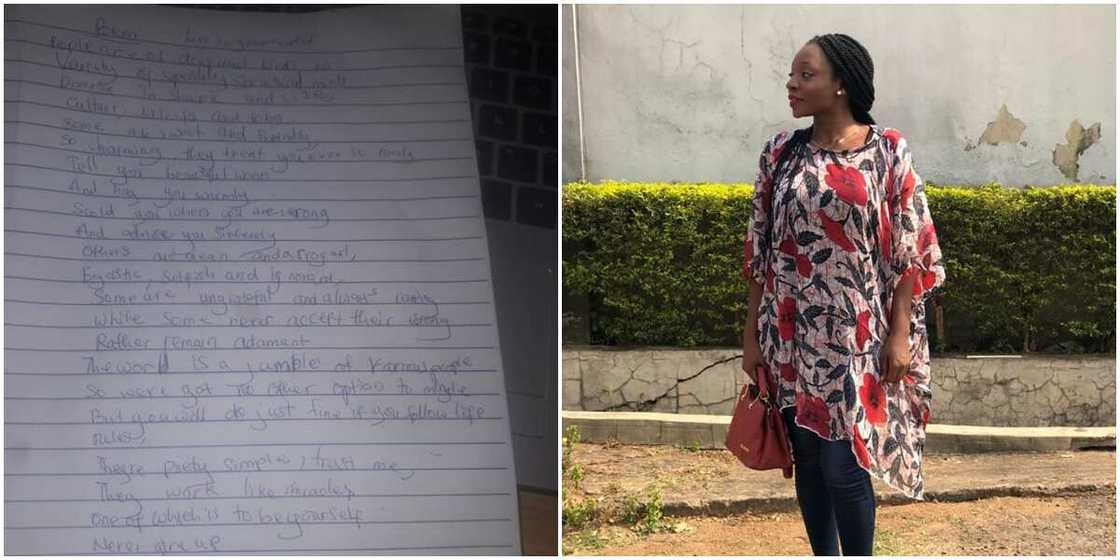 Poem
People are of different kinds, no
Variety of
Diverse in shape and sizes
Culture, and
Some are sweet and friendly
So charming, they treat you ever so nicely
Tell you beautiful words
And hug you warmly
Scold you when you are wrong
And advice you sincerely
Others are mean and arrogant,
Egastic, selfish and Ignorant,
Some are ungrateful and always
While some never accept their wrong
Rather remain adamant
The world is a jumple of people
So we've got no other option to
But you will do just fine if you follow life
rules,
They're pretty simple, trust me,
They work like miracles
One of which is to be yourself
Never give up